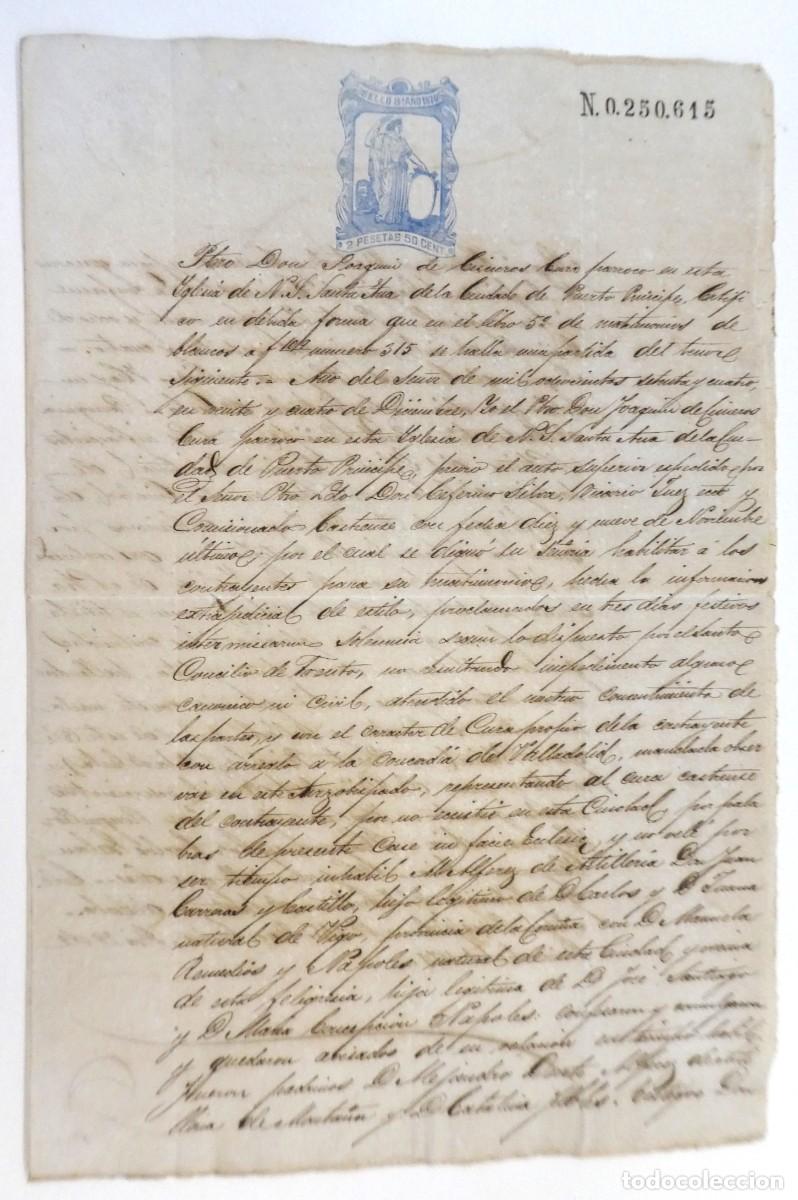 SELLO 8º AÑO 18
N.0.250.615
2 PESETAS 50 CENT.
Pbro Don Joaquin de Cisneros Cura parroco en esta
Yglesia de N. S. Santa Ana de la Ciudad de Puerto Principe, Certifi
co en debida forma que en el libro 5º de matrimonios de
blancos a f numero 315 se halla una partida del tenor
siguiente = Año del Señor de mil ochocientos setenta y cuatro,
en veinte y cuatro de Diciembre, Yo el Pbro Don Joaquin de Cisneros
Cura parroco en esta Yglesia de N. S. Santa Ana de la Ciu-
dad de Puerto Principe, previo el auto superior espedido por
el Señor Pbro Ldo Don Ceferino Silva, Vicario Juez ecco y
Comisionado Castrense con fecha diez y nueve de Noviembre
último, por el cual se dignó su Señoria habilitar á los
contrayentes para su matrimonio, hecha la informacion
extrajudicial de estilo, proclamados en tres dias festivos
segun lo dispuesto por el Santo
Concilio de Trento, no resultando impedimento alguno
canonico ni civil, atendido el mutuo consentimiento de
las partes, y con el caracter de Cura propio de la contrayente
con arreglo á la concordia de Valladolid, mandada obser
var en este Arzobispado, representando al cura castrense
del contrayente, por no existir en esta Ciudad, por pala
bras de presente Case in facie Eclesie, y no velé por
ser tiempo inhabil Al Alferez de Artilleria Don Juan
Carreras y Castillo, hijo legitimo de D. Carlos y Dª Juana
natural de Vigo, provincia de la Coruña con Dª Manuela
Remedios y Napoles natural de esta Ciudad y vecina
de esta feligresia, hija legitima de D. José Santiago
y Dª Maria Concepcion Napoles: confesaron y comulgaron
y quedaron avisados de su velacion en tiempo habil,
Fueron padrinos D. Alejandro Alferez
de y Dª Catalina testigos Don
todocoleccion